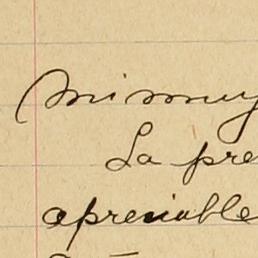 mi muy
La pre
apreciable